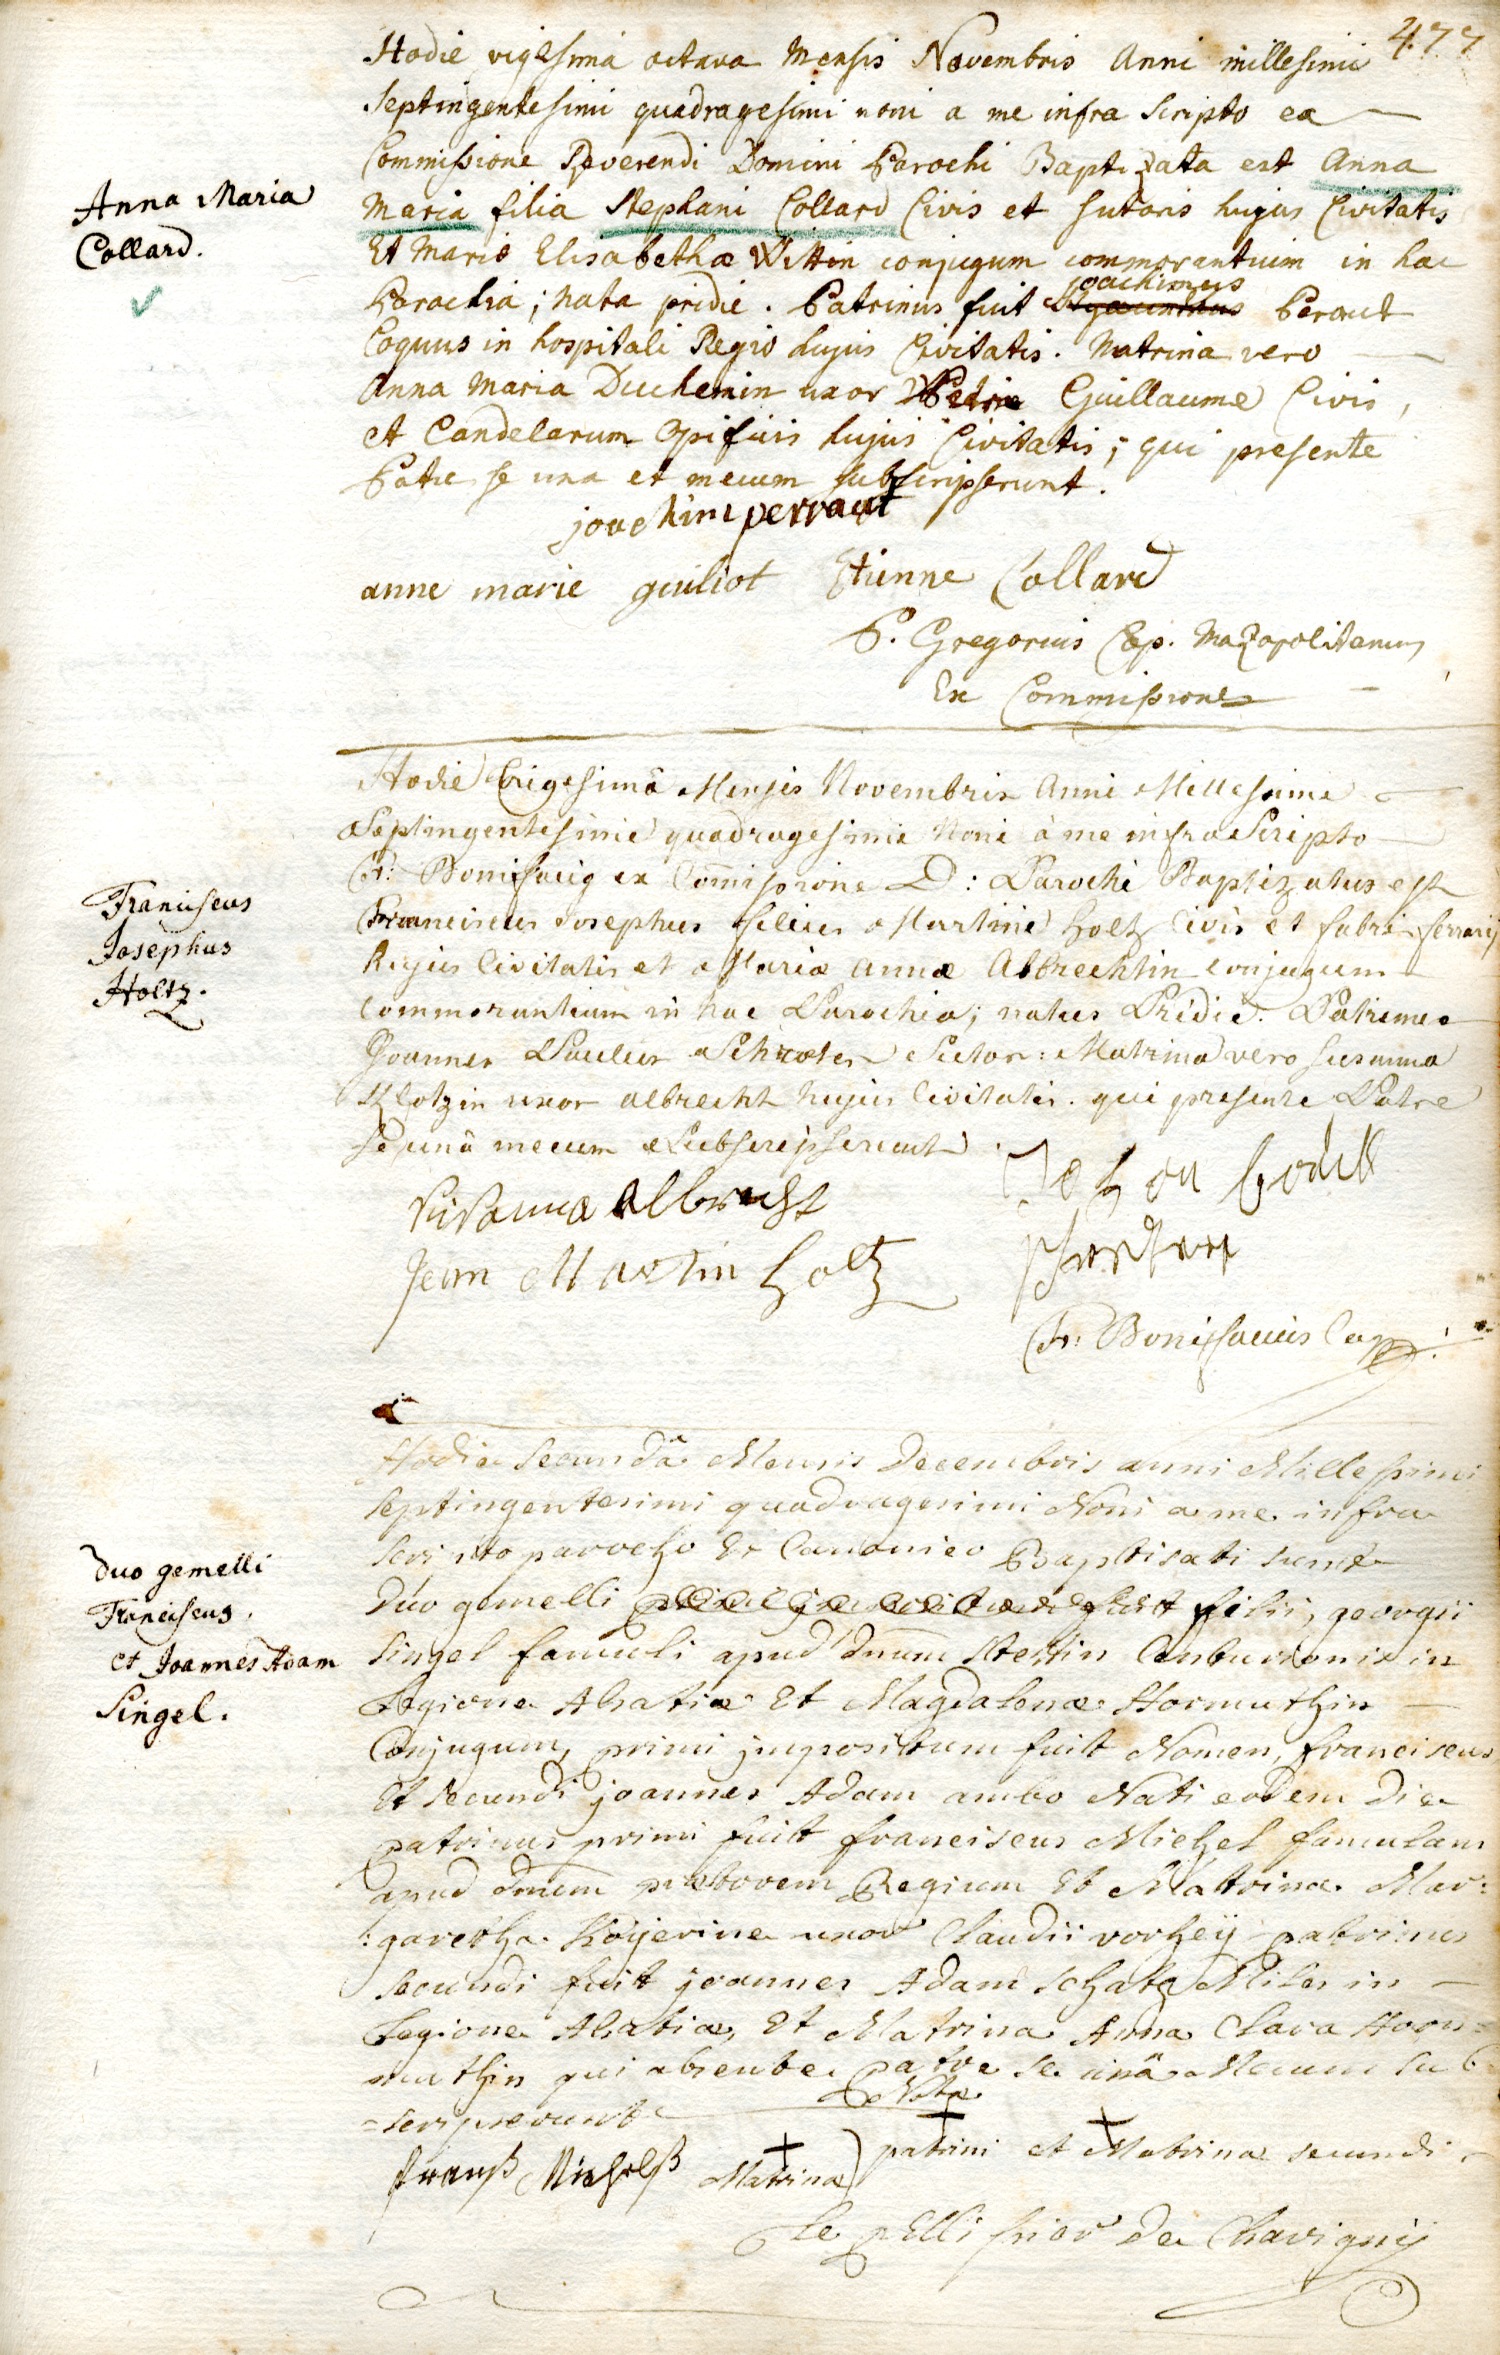 477
Hodie vigesima octava Mensis Novembris Anni millesimi
septingentesimi quadragesimi noni a me infra scripto ex
Commissione Reverendi Domini Parochi Baptizata est Anna
Maria filia Stephani Collard Civis et sutoris hujus Civitatis
Anna Maria
Collard.
Et Mariæ Elisabethæ Wittin conjugum commorantium in hac
Parochia; nata pridie. Patrinus fuit Joachimus Peraut
Coquus in hospitali Regio hujus Civitatis. Matrina vero
Anna Maria Duchemin uxor Petri Guillaume Civis,
et Candelarum Opificis hujus Civitatis; qui presente
Patre se una et mecum subscripserunt.
joachim perraut
anne marie guiliot Etienne Collard
P. Gregorius Cap. Mazopolitanus
Ex Commissione
Hodie Trigesimâ Mensis Novembris Anni Millesimi
Septingentesimi quadragesimi Noni à me infra Scripto
Fr: Bonifacio ex Com̄issione D: Parochi Baptizatus est
Franciscus Josephus filius Martini Holtz Civis et fabri ferrarij
Franciscus
Josephus
Holtz.
hujus Civitatis et Mariæ Annæ Albrechtin conjugum
commorantium in hac Parochia; natus Pridie. Patrinus
Joannes Paulus Schroter Sutor: Matrina vero Susanna
Klotzin uxor Albrecht hujus Civitatis. qui presente Patre
se unâ mecum Subscripserunt.
Susanna Albrecht
Jean Martin Holtz
Fr: Bonifacius Cap:
Hodie Secundâ Mensis Decembris anni Millesimi
septingentesimi quadragesimi Noni a me infra
scripto parocho Et Canonico Baptisati sunt
Duo gemelli filii, georgii
Duo gemelli
Franciscus.
et Joannes Adam
Singel.
Singel famuli apud dnum Stettin Centurionis in
Legione Alsatiæ Et Magdalenæ Hormuthin
Conjugum, primi impositum fuit Nomen, franciscus
Et Secundi joannes Adam ambo Nati eodem die
patrinus primi fuit franciscus Michel famulans
apud dnum prætorem Regium Et Matrina Mar:
:garethaKöyerine uxor Claudii vorheÿ patrinus
secundi fuit joannes Adam schatz Miles in
Legione Alsatiæ, Et Matrina Anna Clara Hor=
muthin qui absente patre se unâ Mecum sub
=scripserunt
Nota
frantz Michelß Matrinæ) patrini et Matrinæ secundi
Le pellissier de Chavigny